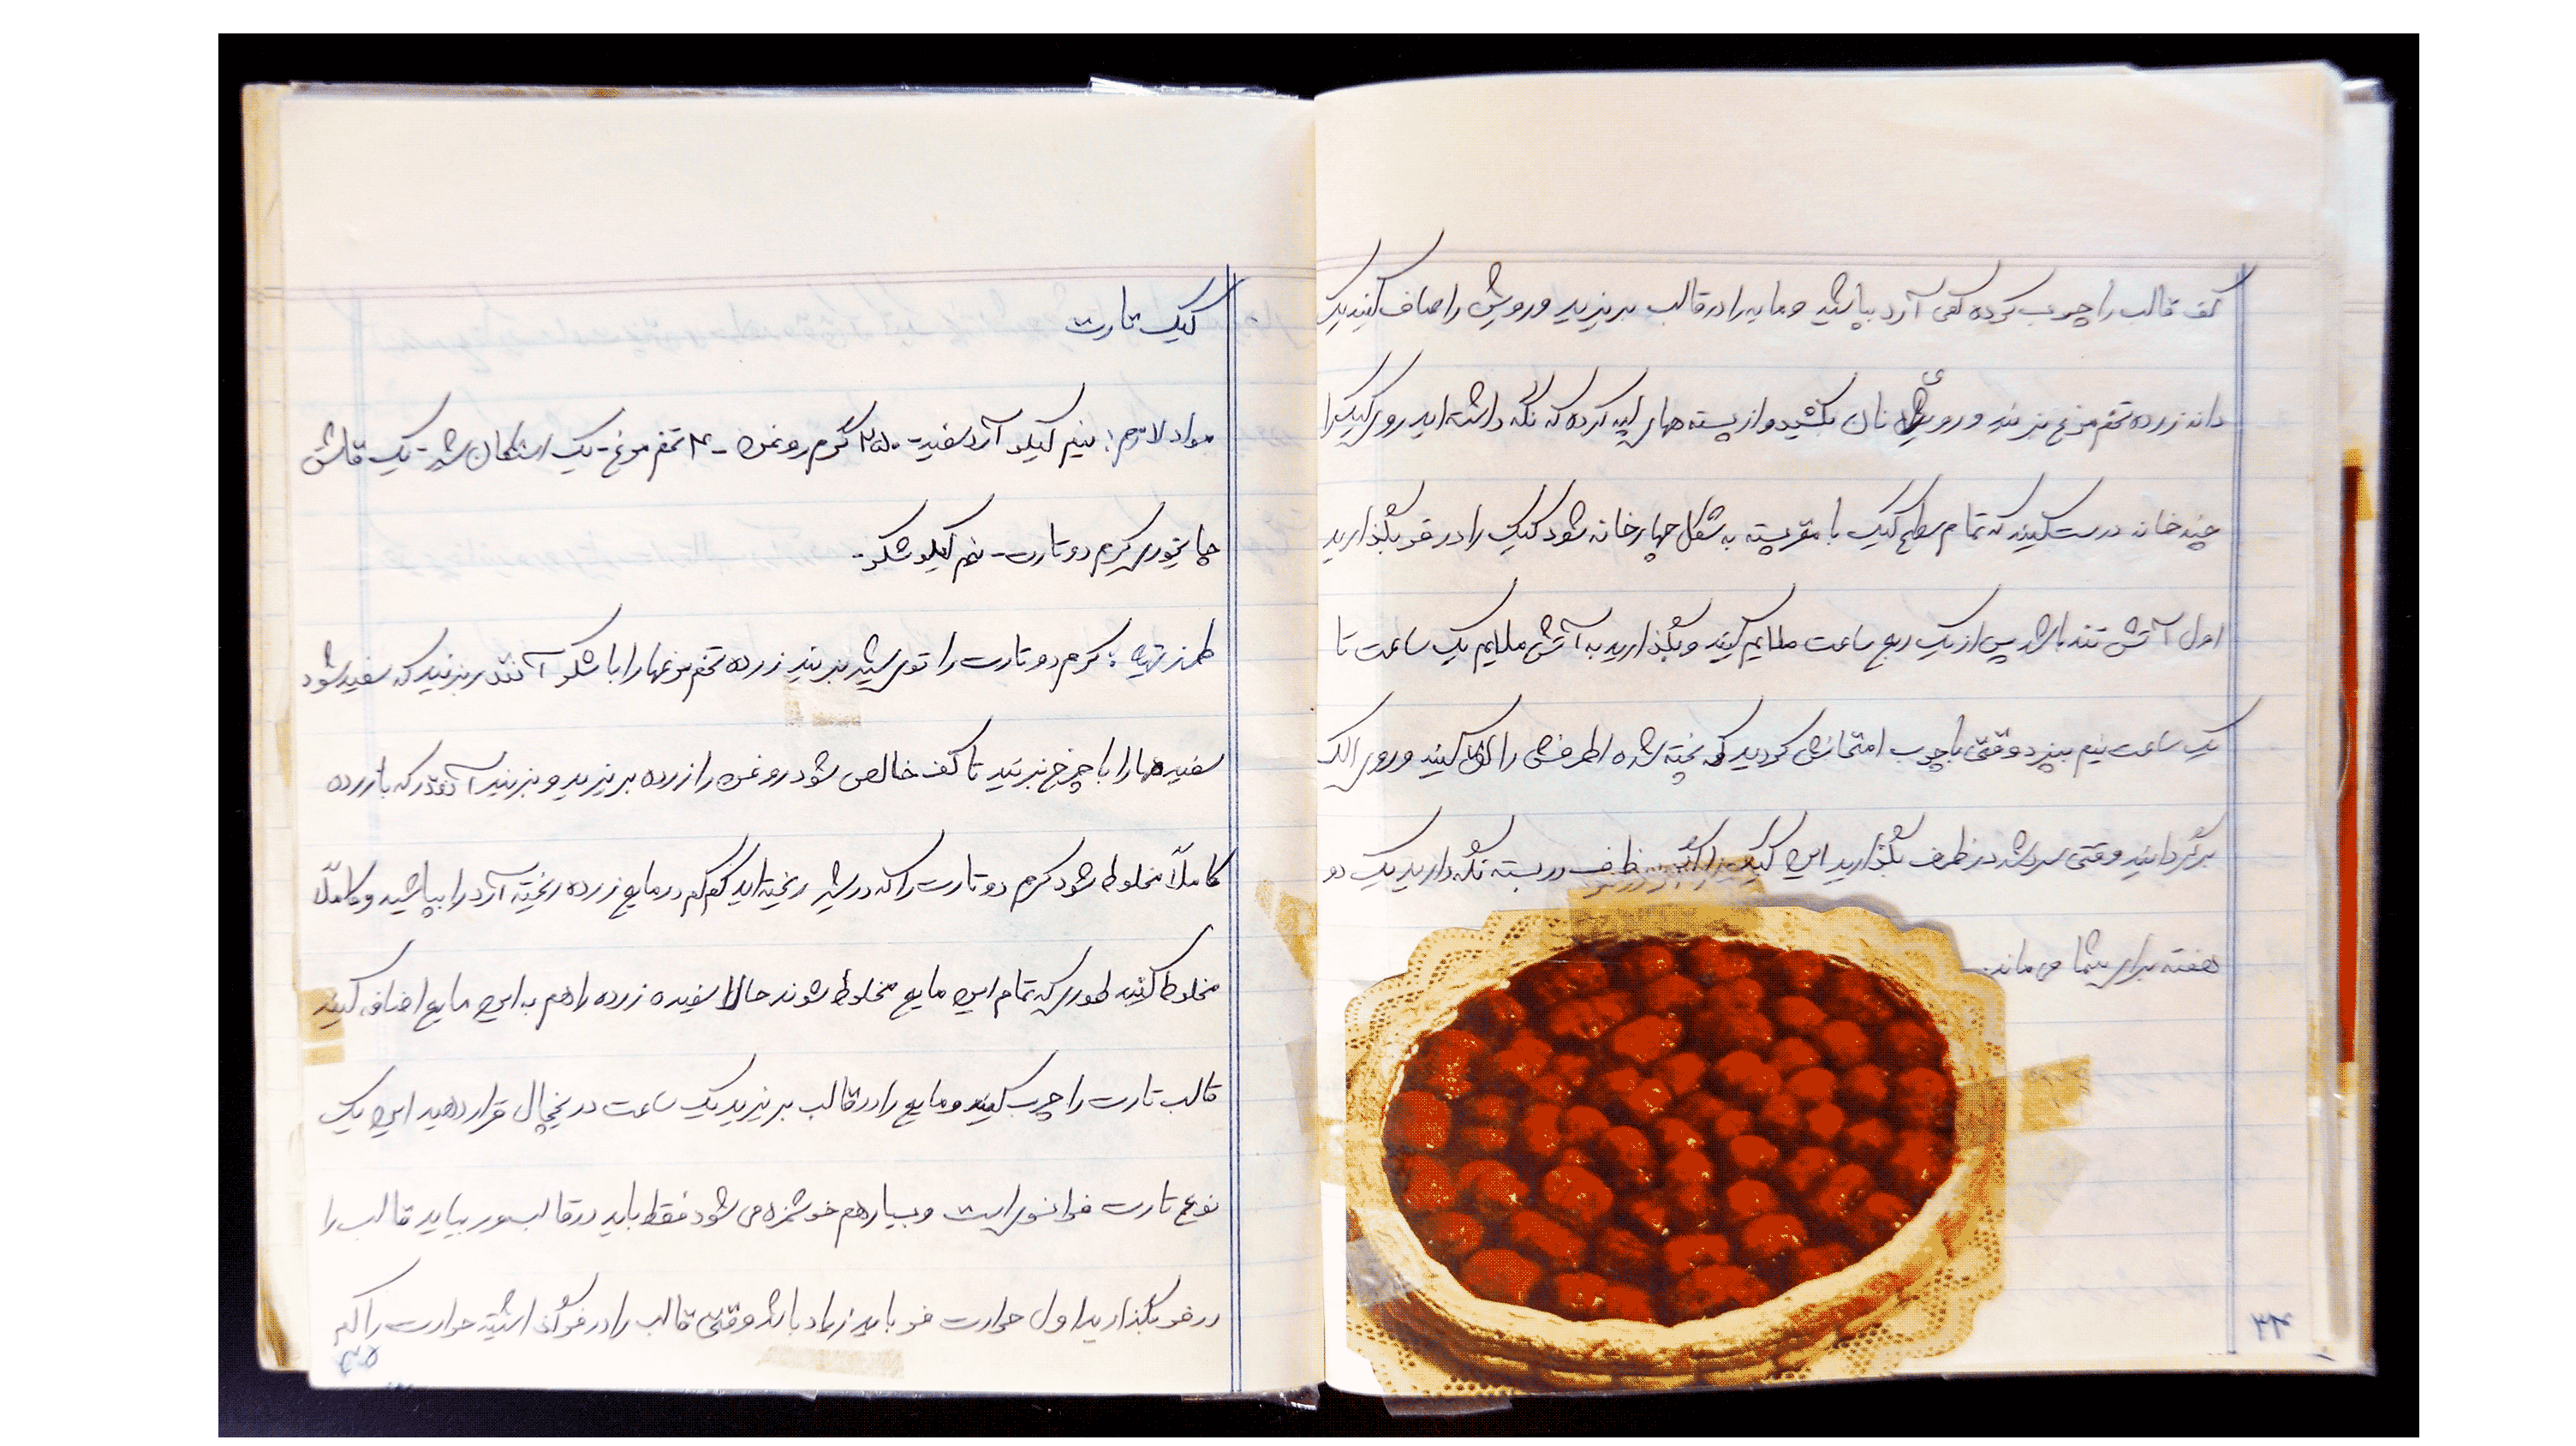 کف قالب را چرب کرده کمی آرد بپاشید و مایه را در قالب بریزید و رویش را صاف کنید یک
دانه زرده تخم مرغ بزنید و روی نان بکشید و از پسته های لپه کرده که نگه داشته اید روی کیک را
چند خانه درست کنید که تمام سطح کیک با مغز پسته به شکل چهار خانه شود کیک را در فر بگذارید
اول آتش تند باشد پس از یک ربع ساعت ملایم کنید و بگذارید به آتش ملایم یک ساعت تا
یک ساعت نیم بپزد وقتی با چوب امتحانش کردید که پخته شده اطرافش را کنید و روی الک
برگردانید وقتی سرد شد در ظرف بگذارید این کیک را در ظرف در بسته نگه دارید یک دو
هفته برای شما می ماند.
۳۴
کیک تارت
مواد لازم: نیم کیلو آرد سفید - ۲۵۰ گرم روغن - ۴ تخم مرغ - یک استکان شیر - یک قاشق
چایخوری کرم دو تارت - نیم کیلو شکر -
طرز تهیه: کرم دو تارت را توی شیر بریزید زرده تخم مرغها را با شکر آنقدر بزنید که سفید شود
سفیده ها را با چرخ بزنید تا کف خالص شود روغن را زرده بریزید و بزنید آنقدر که با زرده
کاملاً مخلوط شود کرم دو تارت را که در شیر ریخته اید کم کم در مایع زرده ریخته آرد را بپاشید و کاملاً
مخلوط کنید طوری که تمام این مایع مخلوط شوند حالا سفیده زرده را هم به این مایع اضافه کنید
قالب تارت را چرب کنید و مایع را در قالب بریزید یک ساعت در یخچال قرار دهید این یک
نوع تارت فرانسوی است و بسیار هم خوشمزه می شود فقط باید در قالب ور بیاید قالب را
در فر بگذارید اول حرارت فر باید زیاد باشد وقتی قالب را در فر گذاشتید حرارت را کم
۳۵